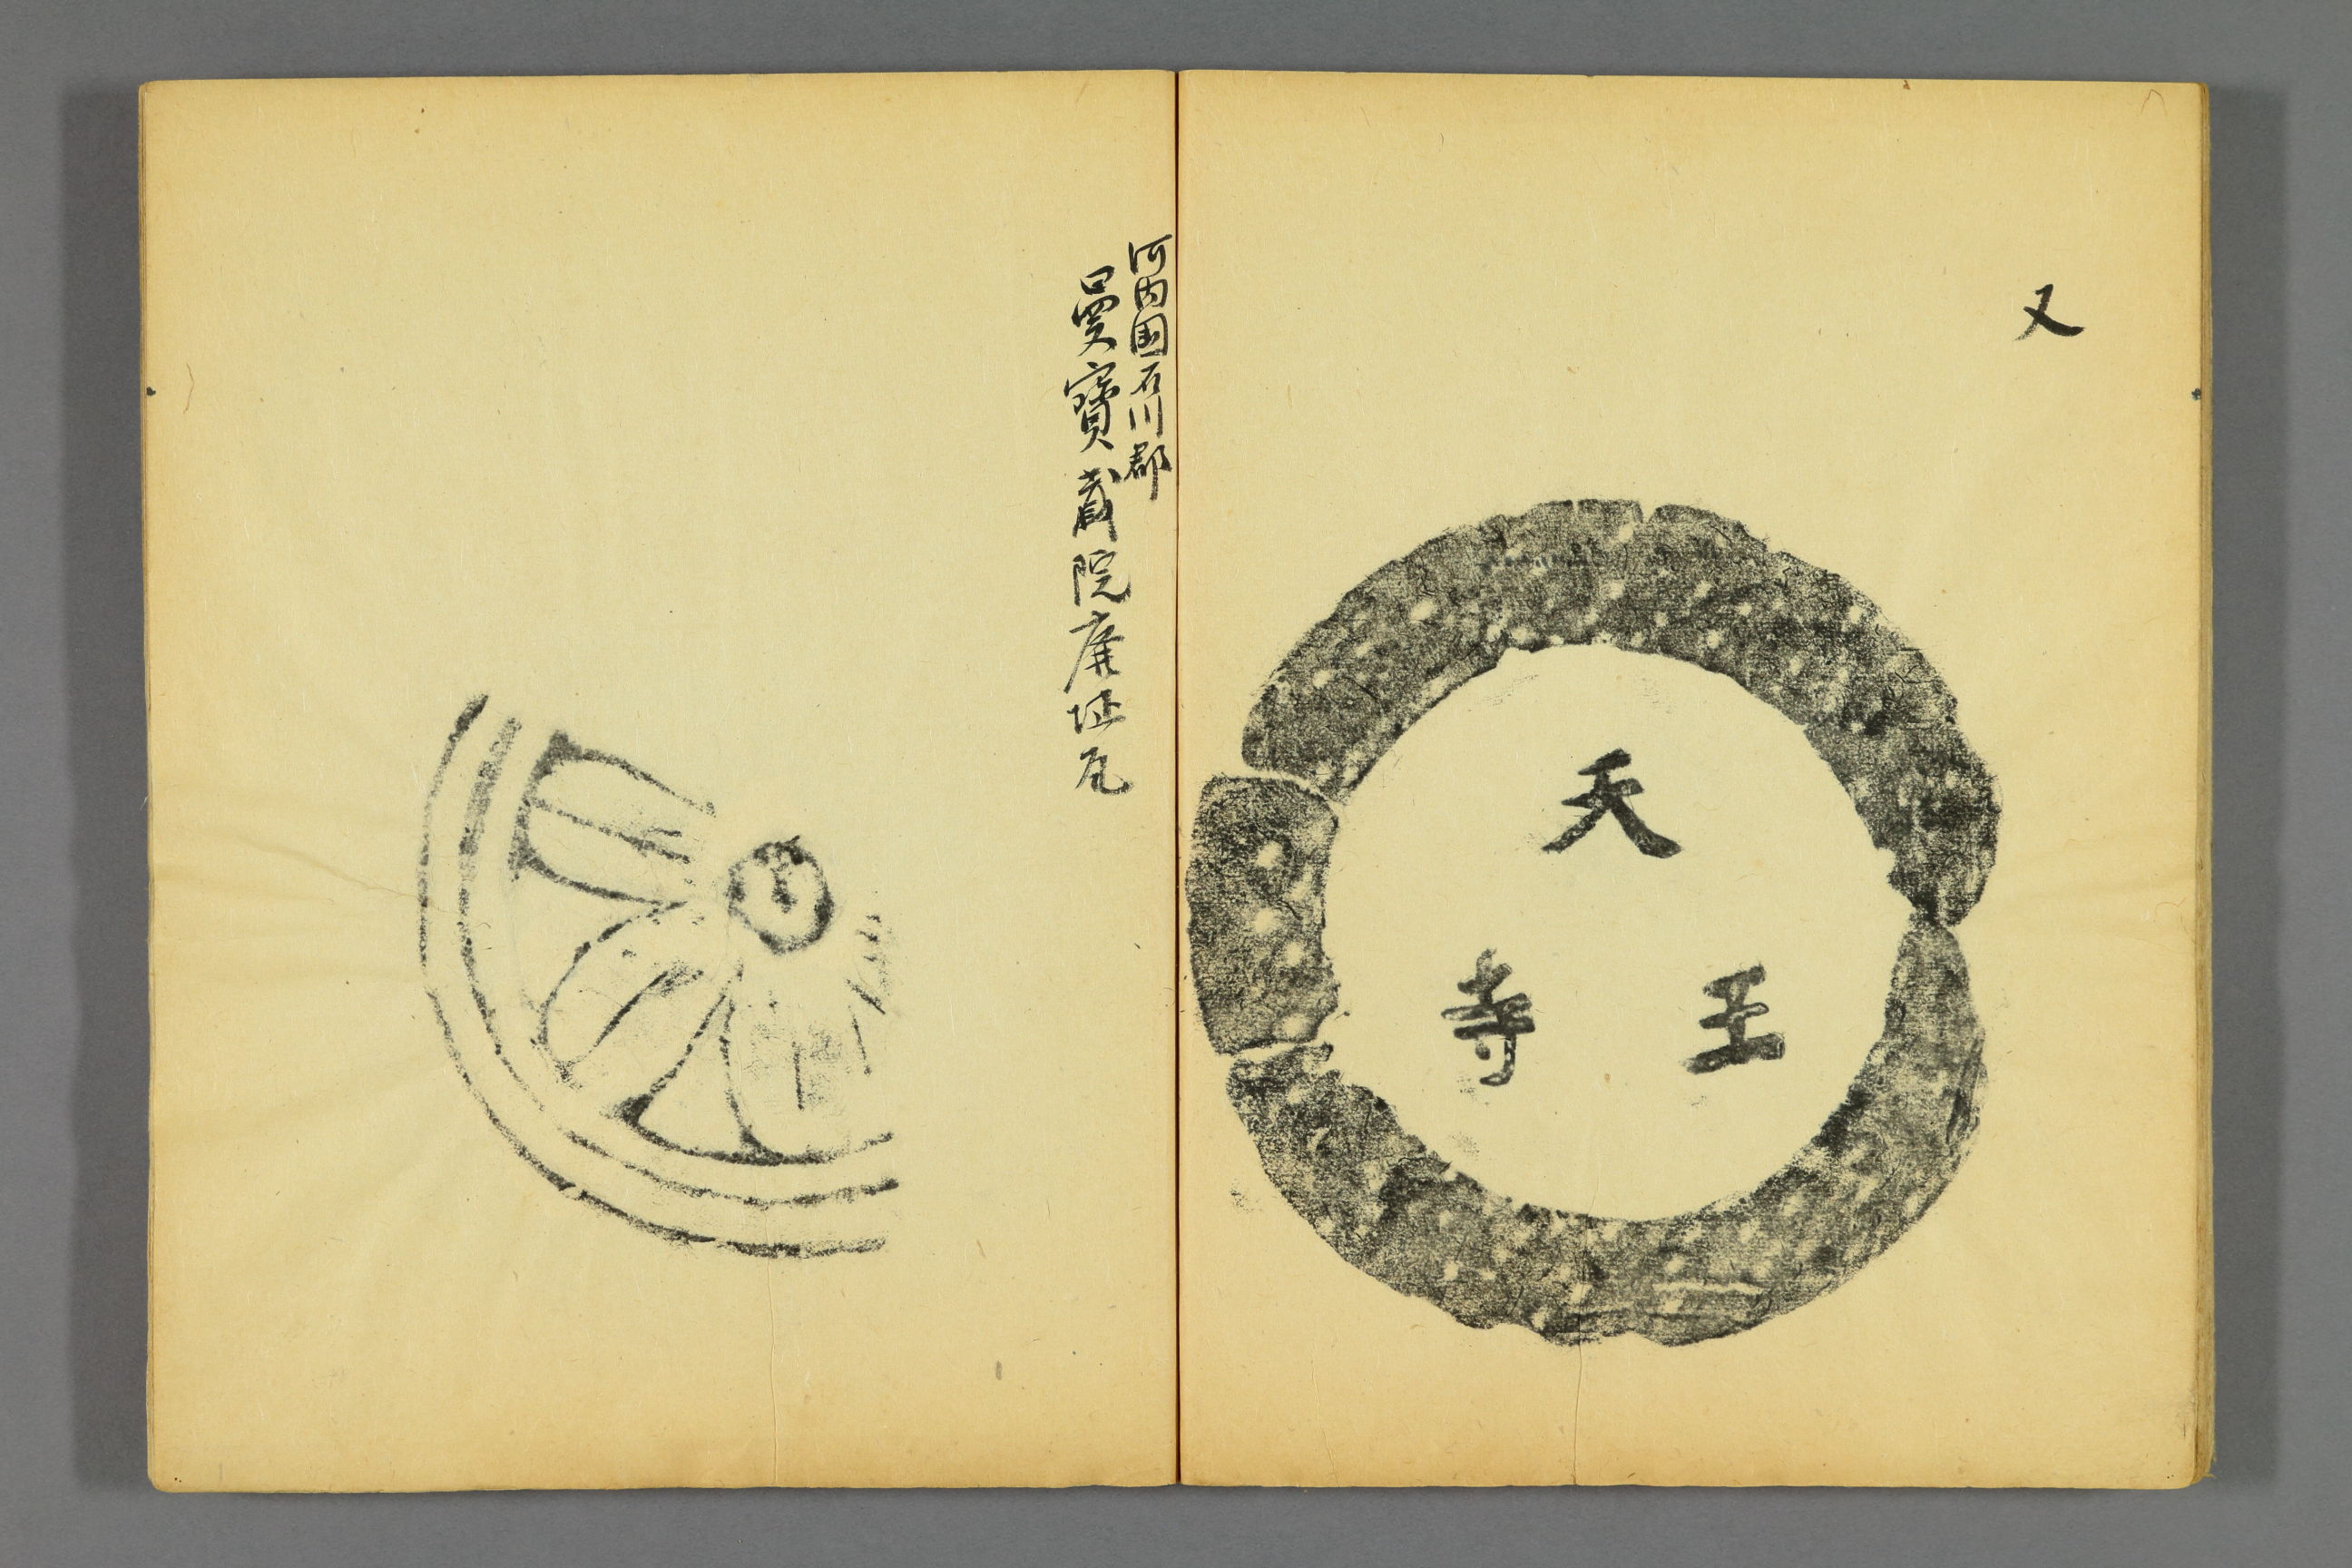 又
天
王
寺
河内国石川郡
曼寳蔵院廃址瓦